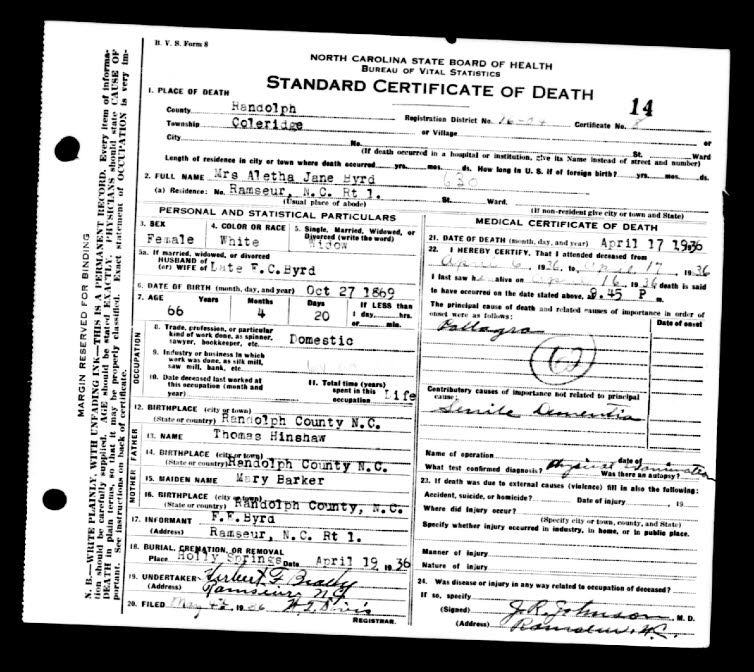 B. V. S. Form 8
NORTH CAROLINA STATE BOARD OF HEALTH
BUREAU OF VITAL STATISTICS
STANDARD CERTIFICATE OF DEATH
14
1. PLACE OF DEATH
County Randolph
Registration District No. Certificate No. 8
Township Coleridge or Village or
City No. St. Ward
(If death occurred in a hospital or institution, give its Name instead of street and number)
Length of residence in city or town where death occurred yrs. mos. ds. How long in U. S. if of foreign birth? yrs. mos. ds.
2. FULL NAME Mrs Aletha Jane Byrd 630
(a) Residence: No. Ramseur, N.C. Rt 1. St. Ward.
(Usual place of abode) (If non-resident give city or town and State)
PERSONAL AND STATISTICAL PARTICULARS
3. SEX Female
4. COLOR OR RACE White
5. Single, Married, Widowed, or Divorced (write the word) Widow
5a. If married, widowed, or divorced
HUSBAND of
(or) WIFE of Late F.C.Byrd
6. DATE OF BIRTH (month, day, and year) Oct 27 1869
7. AGE Years Months Days If LESS than
66 4 20 1 day, hrs.
or min.
OCCUPATION
8. Trade, profession, or particular
kind of work done, as spinner,
sawyer, bookkeeper, etc. Domestic
9. Industry or business in which
work was done, as silk mill,
saw mill, bank, etc.
10. Date deceased last worked at
this occupation (month and
year)
11. Total time (years)
spent in this
occupation Life
12. BIRTHPLACE (city or town)
(State or country) Randolph County N.C.
FATHER
13. NAME Thomas Hinshaw
14. BIRTHPLACE (city or town)
(State or country) Randolph County N.C.
MOTHER
15. MAIDEN NAME Mary Barker
16. BIRTHPLACE (city or town)
(State or country) Randolph County, N.C.
17. INFORMANT F.F.Byrd
(Address) Ramseur, N.C. Rt 1.
18. BURIAL, CREMATION, OR REMOVAL
Place Holly Springs Date April 19 1936
19. UNDERTAKER
(Address) Ramseur N C
20. FILED May 1936
REGISTRAR.
MEDICAL CERTIFICATE OF DEATH
21. DATE OF DEATH (month, day, and year) April 17 1936
22. I HEREBY CERTIFY, That I attended deceased from
April 6, 1936, to April 17, 1936
I last saw h alive on April 16, 1936 death is said
to have occurred on the date stated above, 9.45 P m.
The principal cause of death and related causes of importance in order of
onset were as follows: Date of onset
Pellagra
62
Contributory causes of importance not related to principal
cause:
Senile Dementia
Name of operation date of
What test confirmed diagnosis? Physical Examination Was there an autopsy?
23. If death was due to external causes (violence) fill in also the following:
Accident, suicide, or homicide? Date of injury , 19
Where did injury occur?
(Specify city or town, county, and State)
Specify whether injury occurred in industry, in home, or in public place.
Manner of injury
Nature of injury
24. Was disease or injury in any way related to occupation of deceased?
If so, specify
(Signed) J. R. Johnson, M. D.
(Address) Ramseur N.C.
MARGIN RESERVED FOR BINDING
N. B.—WRITE PLAINLY, WITH UNFADING INK—THIS IS A PERMANENT RECORD. Every item of informa-
tion should be carefully supplied. AGE should be stated EXACTLY. PHYSICIANS should state CAUSE OF
DEATH in plain terms, so that it may be properly classified. Exact statement of OCCUPATION is very im-
portant. See instructions on back of certificate.